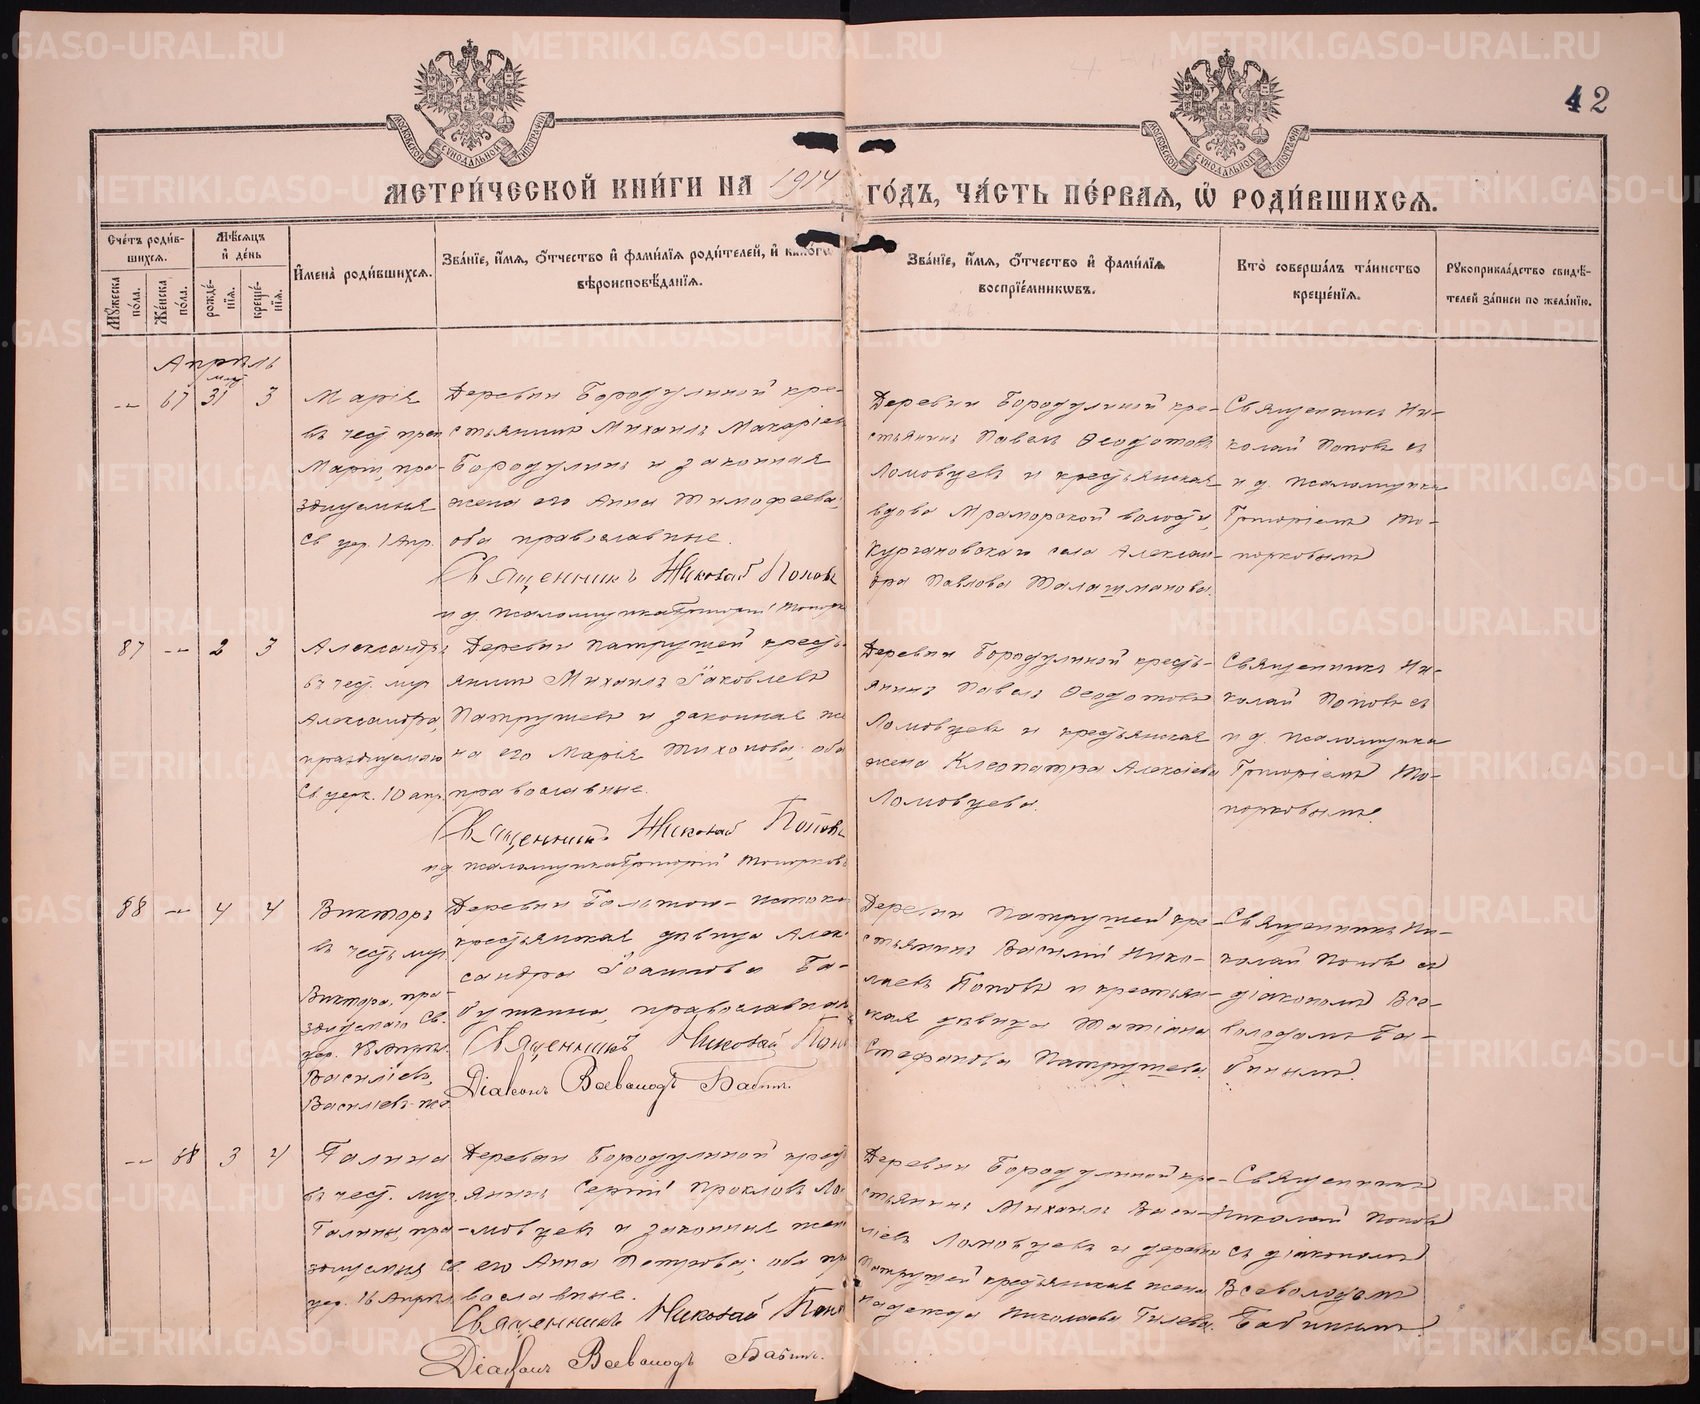 42
МОСКОВСКОЙ СѴНОДАЛЬНОЙ ТИПОГРАФІИ
МОСКОВСКОЙ СѴНОДАЛЬНОЙ ТИПОГРАФІИ
МЕТРИ́ЧЕСКОЙ КНИ́ГИ НА 1914 ГО́ДЪ, ЧА́СТЬ ПЕ́РВАѦ, Ѡ҆ РОДИ́ВШИХСѦ.
Сче́тъ роди́в-
шихсѧ.
Мꙋ́жеска по́ла.
Же́нска по́ла.
Мѣ́сѧцъ и҆ де́нь
рожде́-
нїѧ.
креще́-
нїѧ.
И҆мена̀ роди́вшихсѧ.
Зва́нїе, и҆́мѧ, ѻ҆́тчество и҆ фами́лїѧ роди́телей, и҆ како́гѡ
вѣроисповѣ́данїѧ.
Зва́нїе, и҆́мѧ, ѻ҆́тчество и҆ фами́лїѧ
воспрїе́мникѡвъ.
Кто̀ соверша́лъ та́инство
креще́нїѧ.
Рꙋкоприкла́дство свидѣ́-
телей за́писи по жела́нїю.
Апрѣль
май
67 31 3
Марія
въ чест преп
Маріи, пра-
зднуемыя
Св. цер. 1 Апр.
Деревни Бородулиной кре-
стьянинъ Михаилъ Макаріевъ
Бородулинъ и законная
жена его Анна Тимофеева,
оба православные.
Священникъ Николай Поповъ
и д. псаломщика Григорій Топорк
Деревни Бородулиной кре-
стьянинъ Павелъ Ѳеодотовъ
Ломовцевъ и крестьянская
вдова Мраморской волости,
Кургановскаго села Алексан-
дра Павлова Талашманова.
Священникъ Ни-
колай Поповъ съ
и д. псаломщика
Григоріемъ То-
порковымъ
87 2 3
Александръ
въ чест. муч
Александра,
празднуемаго
Св. церк. 10 апр.
Деревни Патрушей кресть-
янинъ Михаилъ Іаковлевъ
Патрушевъ и законная же
на его Марія Тихонова; оба
православные.
Священникъ Николай Поповъ
и д псаломщика Григорій Топорковъ
Деревни Бородулиной кресть-
янинъ Павелъ Ѳеодотовъ
Ломовцевъ и крестьянская
жена Клеопатра Алексіева
Ломовцева.
Священникъ Ни-
колай Поповъ съ
и д. псаломщика
Григоріемъ То-
порковымъ.
88 4 4
Викторъ
въ честь муч.
Виктора, пра-
зднуемаго Св.
цер. 18 Апрѣл.
Василіевъ,
Деревни Большого-истока
крестьянская дѣвица Алек-
сандра Іоаннова Ба-
бушкина, православная
Священникъ Николай Попов
Діаконъ Всеволодъ Бабинъ.
Деревни Патрушей кре-
стьянинъ Василій Нико-
лаевъ Поповъ и крестьян-
ская дѣвица Татіана
Стефанова Патрушева.
Священникъ Ни-
колай Поповъ съ
діакономъ Все-
володомъ Ба-
бинымъ.
68 3 4
Галина
въ чест. муч.
Галины, пра-
зднуемыя Св.
цер. 16 Апрѣл
Деревни Бородулиной крест
янинъ Сергій Прокловъ Ло-
мовцевъ и законная жен
его Анна Петрова; оба пра
вославные.
Священникъ Николай Попов
Діаконъ Всеволодъ Бабинъ.
Деревни Бородулиной кре-
стьянинъ Михаилъ Васи-
ліевъ Ломовцевъ и деревни
Патрушей крестьянская жена
Надежда Николаева Гилева.
Священникъ
Николай Поповъ
съ діакономъ
Всеволодомъ
Бабинымъ.
METRIKI.GASO-URAL.RU